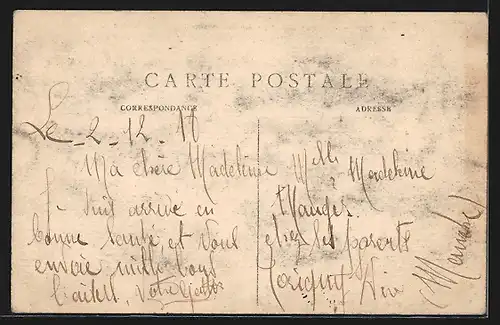 CARTE POSTALE
CORRESPONDANCE
ADRESSE
Le 2-12-16
Ma chère Madeleine
Je suis arrivé en
bonne santé et vous
envoie mille bons
baisers, Votre
Mlle Madeleine
chez ses parents
Torigny
(Manche)